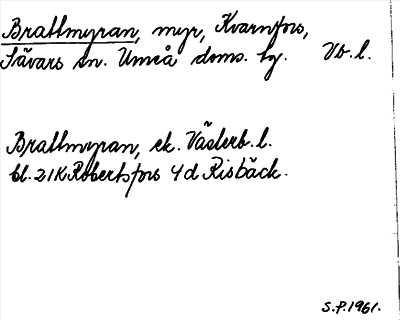 Brattmyran, myr, Kvarnfors,
Sävars sn. Umeå doms. hg. Vb. l.
Brattmyran, ek. Västerb. l.
bl. 21K Robertsfors 4d Risbäck.
S.P. 1961.